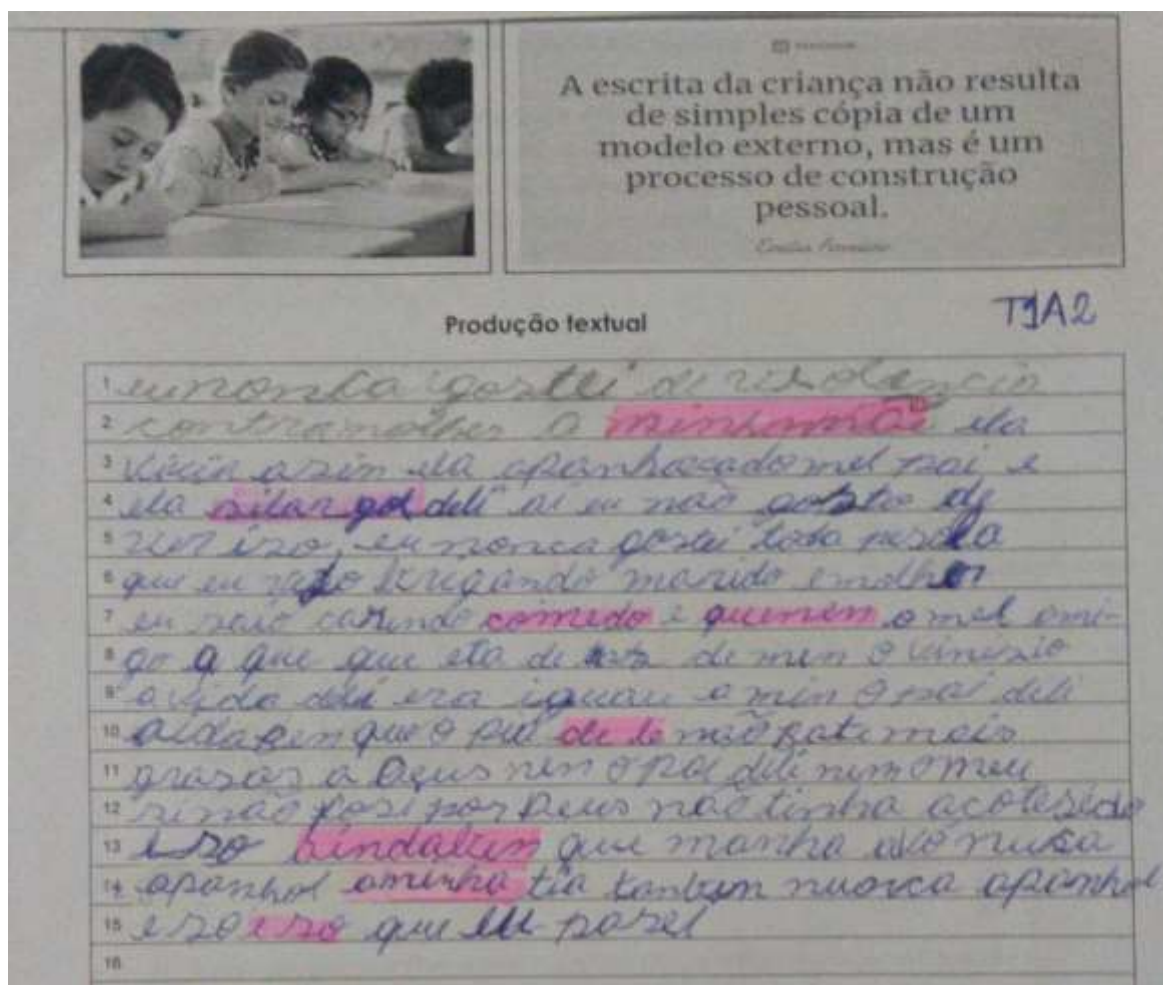 A escrita da criança não resulta
de simples cópia de um
modelo externo, mas é um
processo de construção
pessoal.
Emilia Ferreiro
T1A2
Produção textual
1 eu nonca gostei de
2 contra molher a minhamãe ela
3 vivia asin ela apanhava do mel pai e
4 ela dele ai eu não gosto de
5 ver iso, eu nonca gostei toda pesoa
6 que eu vejo brigando marido emolher
7 eu saio corendo comedo e quenen o mel ami-
8 go a que que eta de de men o
9 a vida deli era iguau a min o pai deli
10 aidaben que o pai de le não bate mais
11 grasas a Deus nen o pai deli nem o meu
12 sinão fosi por Deus não tinha acotesido
13 iso aindaben que manha avo nuca
14 apanhol aminha tia tanben nuonca apanhol
15 e so iso que eu pasei
16